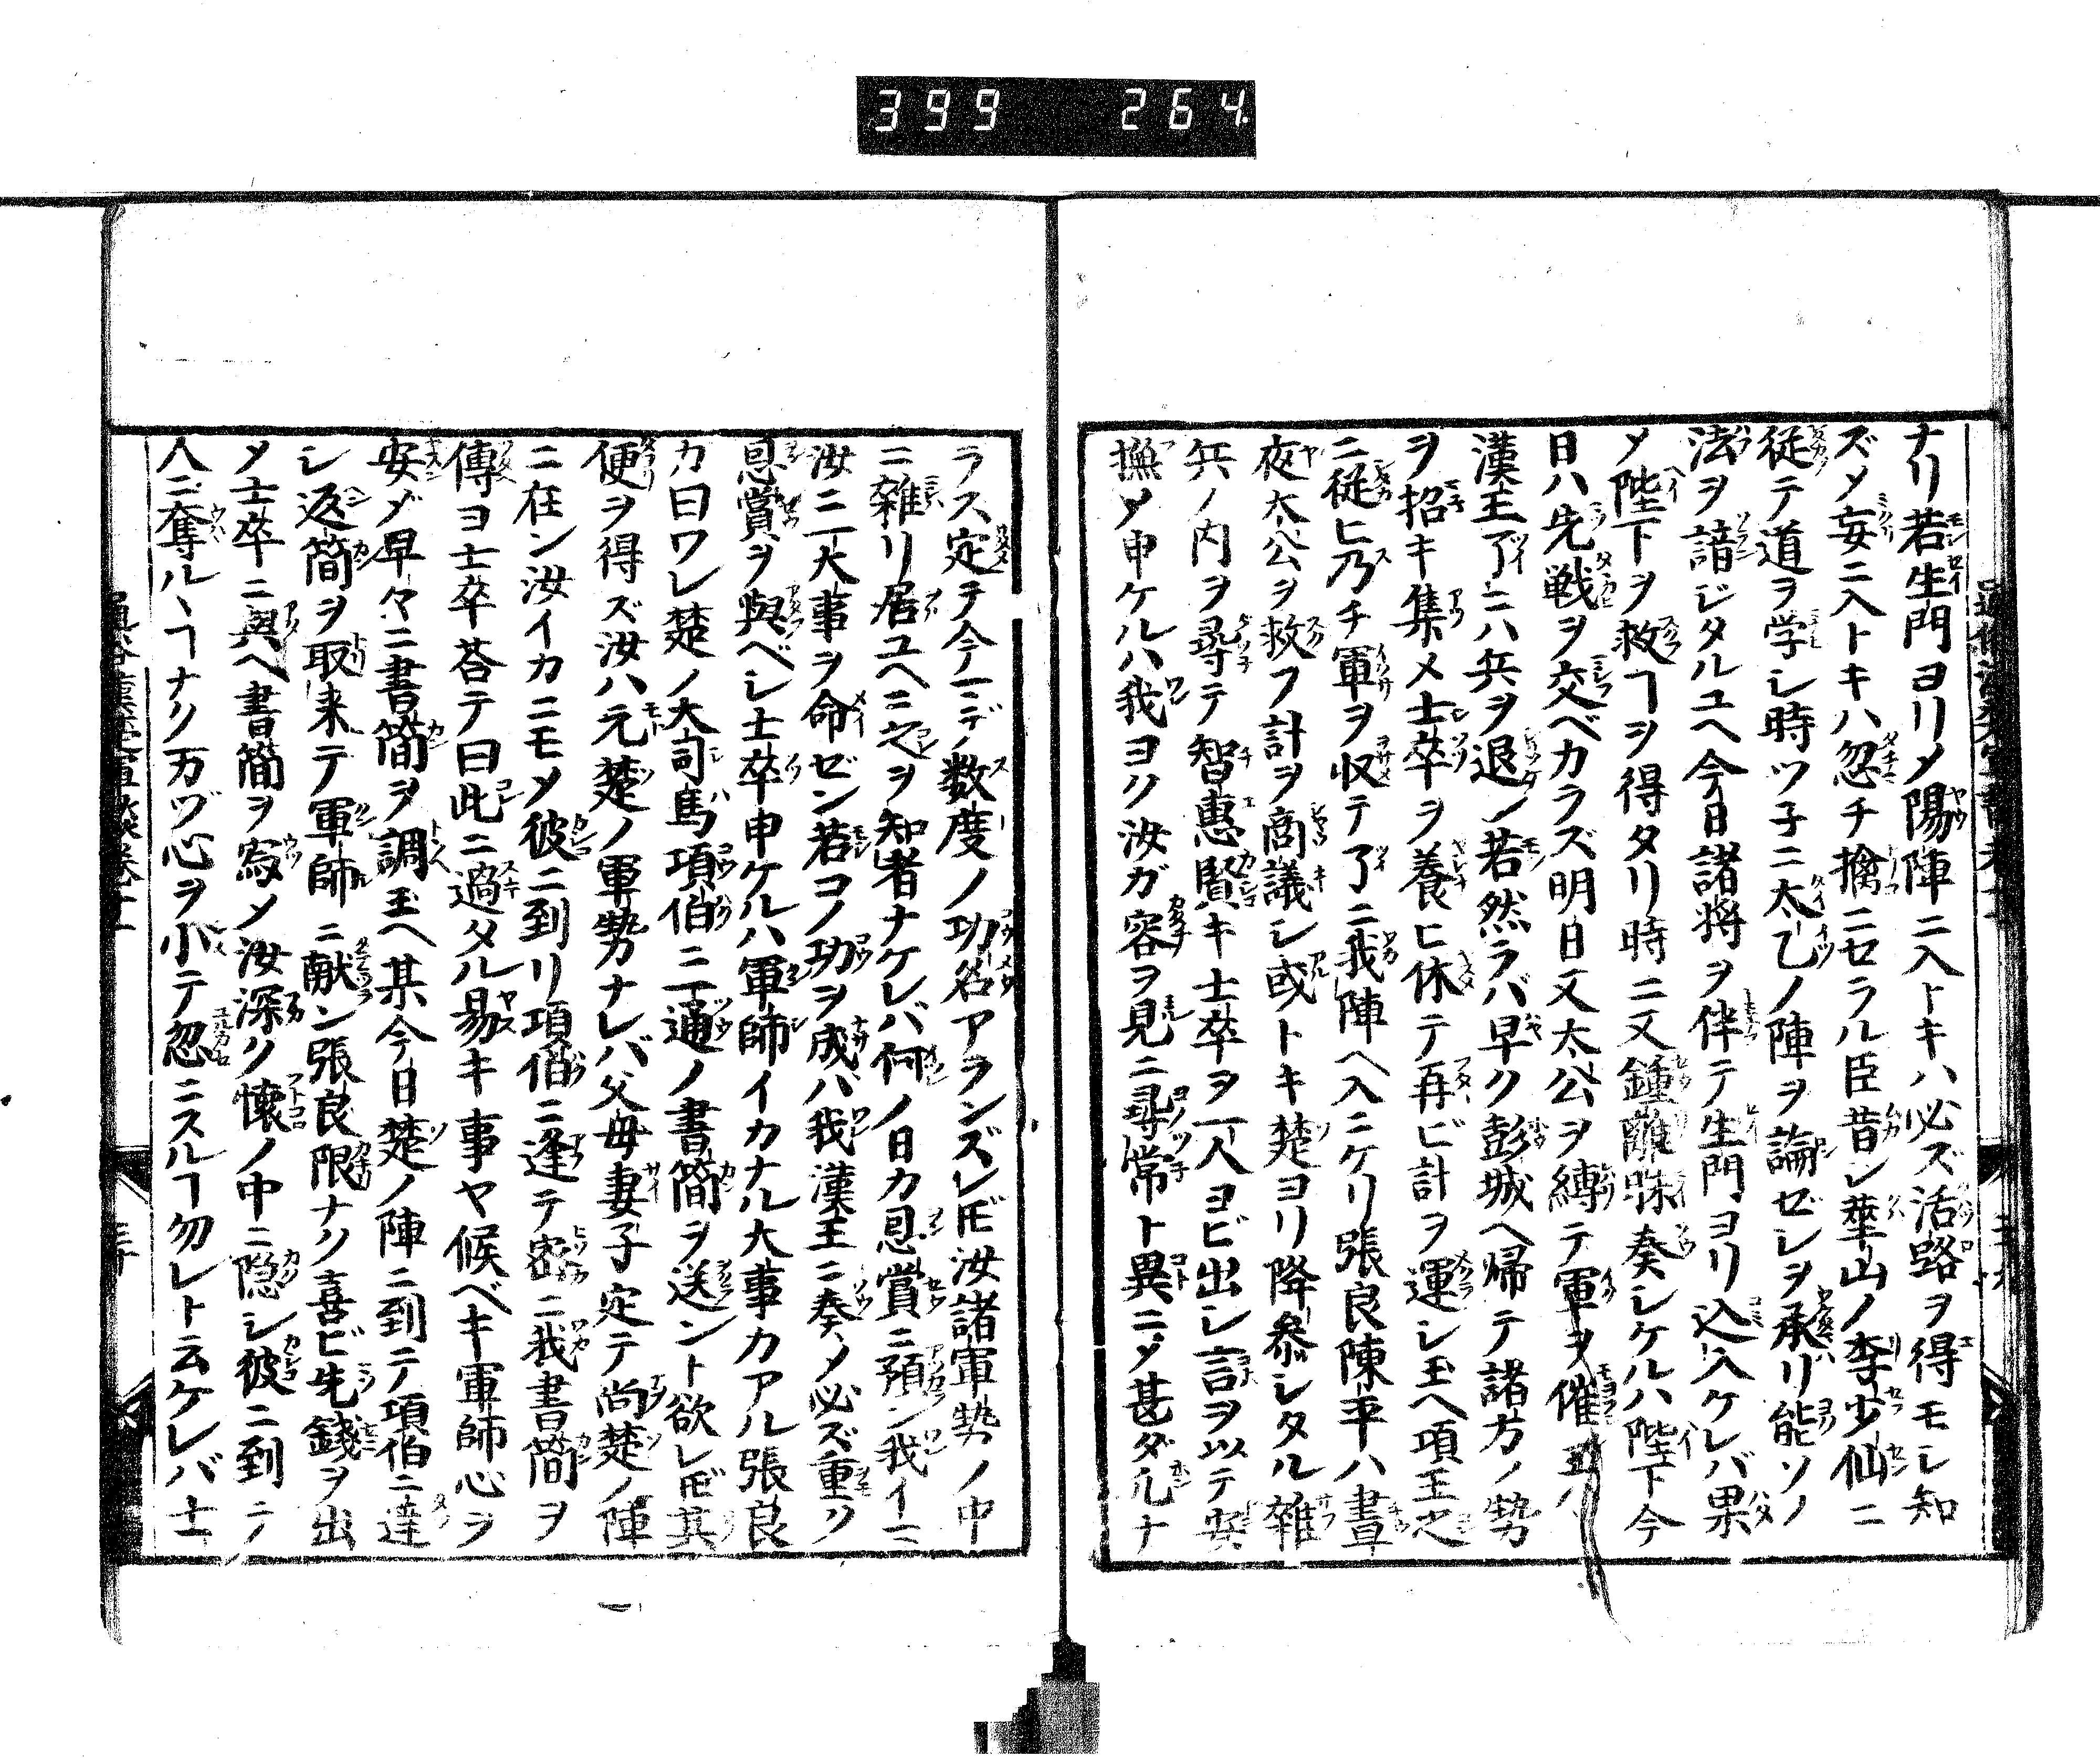 399 264
ナリ若生門ヨリメ陽陣ニ入トキハ必ズ活路ヲ得モシ知
ズメ妄ニ入トキハ忽チ擒ニセラル臣昔シ華山ノ李少仙ニ
従テ道ヲ学シ時ツ子ニ太乙ノ陣ヲ論ゼシヲ承リ能ソノ
法ヲ諳ジタルユヘ今日諸将ヲ伴テ生門ヨリ込入ケレバ果
メ陛下ヲ救ヿヲ得タリ時ニ又鍾離昧奏シケルハ陛下今
日ハ先戦ヲ交ベカラズ明日又太公ヲ縛テ軍ヲ催玉ハ
漢王了ニハ兵ヲ退ン若然ラバ早ク彭城ヘ帰テ諸方ノ勢
ヲ招キ集メ士卒ヲ養ヒ休テ再ビ計ヲ運シ玉ヘ項王之
ニ従ヒ乃チ軍ヲ収テ了ニ我陣ヘ入ニケリ張良陳平ハ晝
夜太公ヲ救フ計ヲ商議シ或トキ楚ヨリ降参シタル雜
兵ノ内ヲ尋テ智惠賢キ士卒ヲ一人ヨビ出シ言ヲ以テ安
撫メ申ケルハ我ヨク汝ガ容ヲ見ニ尋常ト異ニメ甚ダ凡ナ
ラス定テ今マデノ数度ノ功名アランズレ𪜈汝諸軍勢ノ中
ニ雜リ居ユヘニ之ヲ知者ナケレバ何ノ日カ恩賞ニ預ン我イマ
汝ニ一大事ヲ命ゼン若コノ功ヲ成バ我漢王ニ奏メ必ズ重ク
恩賞ヲ與ベシ士卒申ケルハ軍師イカナル大事カアル張良
カ曰ワレ楚ノ大司馬項伯ニ一通ノ書簡ヲ送ント欲レ𪜈其
便ヲ得ズ汝ハ元楚ノ軍勢ナレバ父母妻子定テ尚楚ノ陣
ニ在ン汝イカニモメ彼ニ到リ項伯ニ逢テ密ニ我書簡ヲ
傳ヨ士卒荅テ曰此ニ過タル易キ事ヤ候ベキ軍師心ヲ
安メ早々ニ書簡ヲ調玉ヘ某今日楚ノ陣ニ到テ項伯ニ達
シ返簡ヲ取来テ軍師ニ献ン張良限ナク喜ビ先錢ヲ出
メ士卒ニ與ヘ書簡ヲ寫メ汝深ク懷ノ中ニ隠シ彼ニ到テ
人ニ奪ルヽヿナク万ヅ心ヲ小テ忽ニスルヿ勿レト云ケレバ士